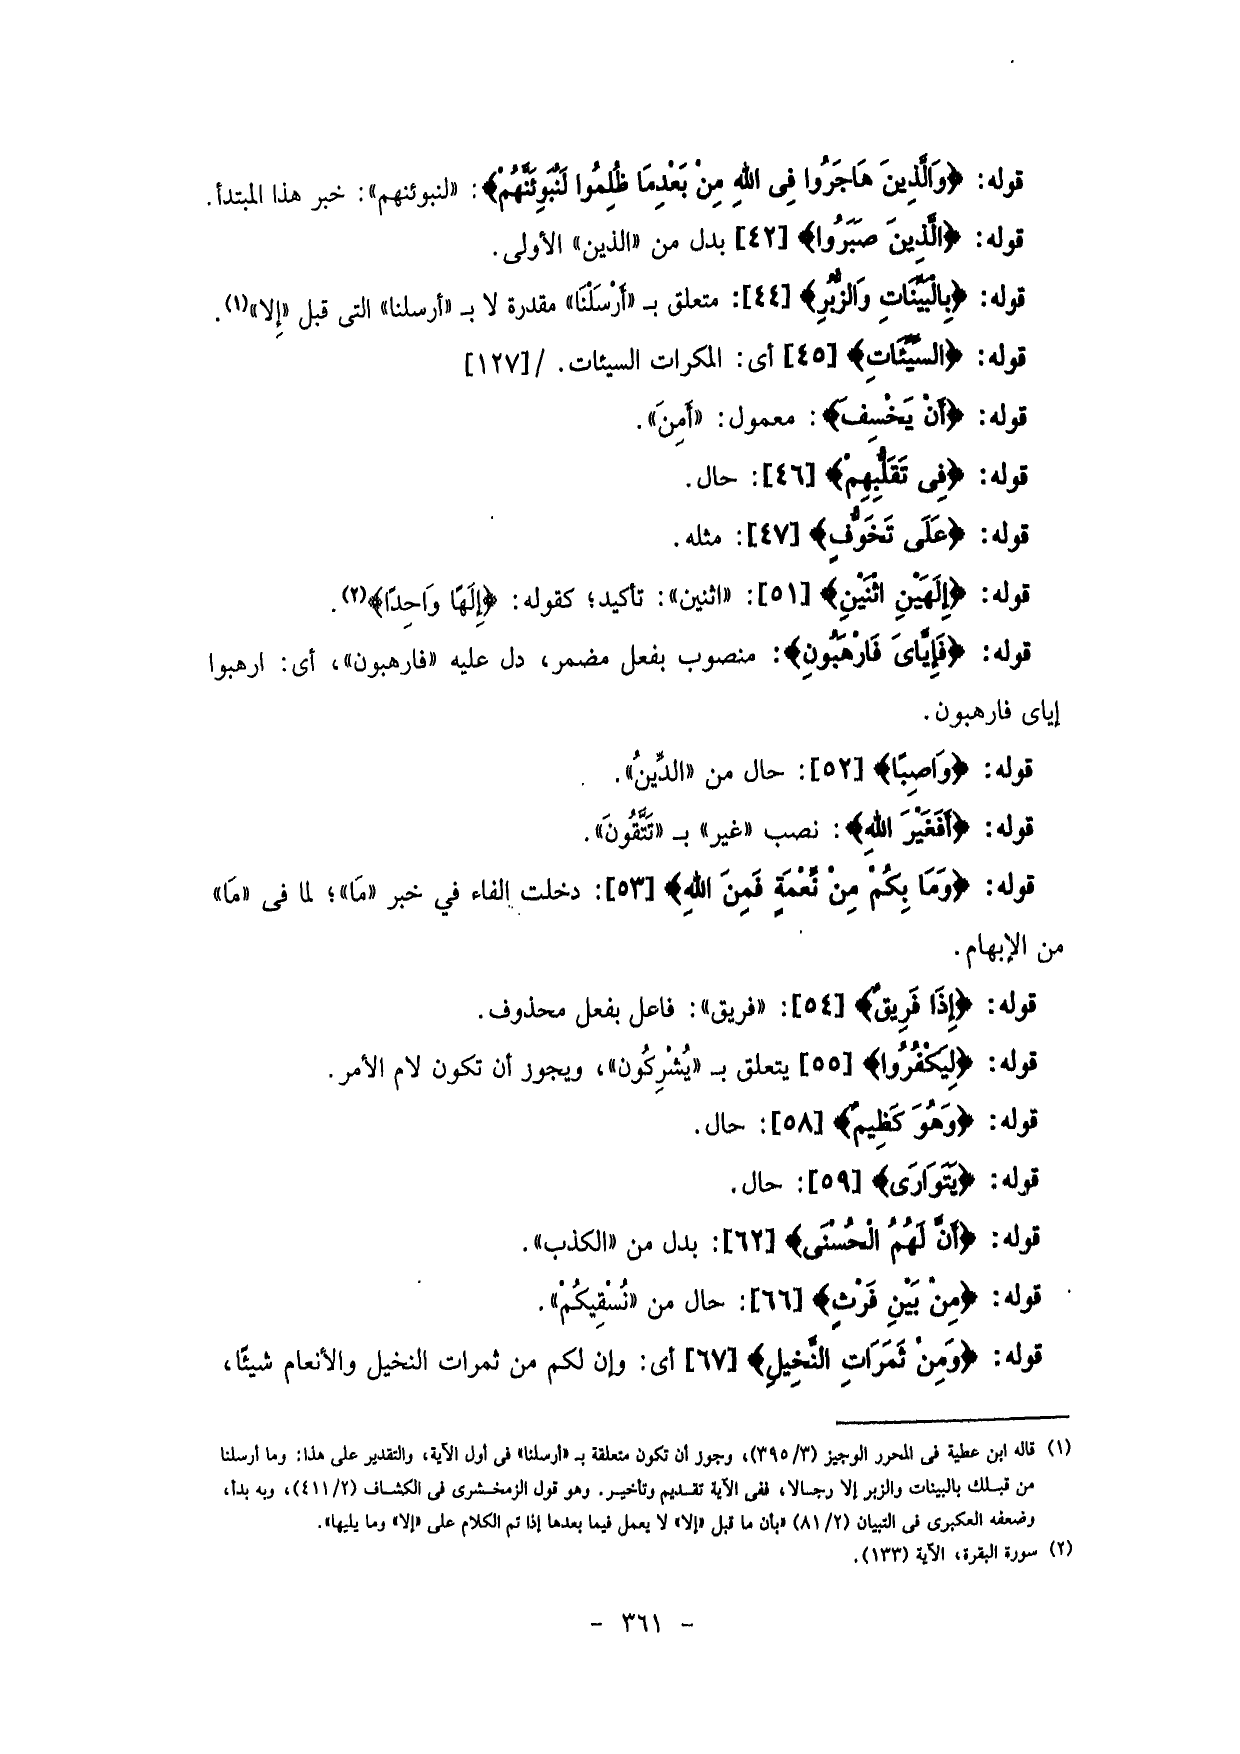 قوله: ﴿وَالَّذِينَ هَاجَرُوا فِى اللهِ مِنْ بَعْدِمَا ظُلِمُوا لَنُبَوِّئَنَّهُمْ﴾: «لنبوئنهم»: خبر هذا المبتدأ.
قوله: ﴿الَّذِينَ صَبَرُوا﴾ [٤٢] بدل من «الذين» الأولى.
قوله: ﴿بِالْبَيِّنَاتِ وَالزُّبُرِ﴾ [٤٤]: متعلق بـ «أَرْسَلْنَا» مقدرة لا بـ «أرسلنا» التى قبل «إِلا»(١).
قوله: ﴿السَّيِّئَاتِ﴾ [٤٥] أى: المكرات السيئات. /[١٢٧]
قوله: ﴿أَنْ يَخْسِفَ﴾: معمول: «أَمِنَ».
قوله: ﴿فِى تَقَلُّبِهِمْ﴾ [٤٦]: حال.
قوله: ﴿عَلَى تَخَوُّفٍ﴾ [٤٧]: مثله.
قوله: ﴿إِلَهَيْنِ اثْنَيْنِ﴾ [٥١]: «اثنين»: تأكيد؛ كقوله: ﴿إِلَهًا وَاحِدًا﴾(٢).
قوله: ﴿فَإِيَّاىَ فَارْهَبُونِ﴾: منصوب بفعل مضمر، دل عليه «فارهبون»، أى: ارهبوا
إياى فارهبون.
قوله: ﴿وَاصِبًا﴾ [٥٢]: حال من «الدِّينُ».
قوله: ﴿أَفَغَيْرَ اللهِ﴾: نصب «غير» بـ «تَتَّقُونَ».
قوله: ﴿وَمَا بِكُمْ مِنْ نِّعْمَةٍ فَمِنَ اللهِ﴾ [٥٣]: دخلت الفاء في خبر «مَا»؛ لما فى «مَا»
من الإبهام.
قوله: ﴿إِذَا فَرِيقٌ﴾ [٥٤]: «فريق»: فاعل بفعل محذوف.
قوله: ﴿لِيَكْفُرُوا﴾ [٥٥] يتعلق بـ «يُشْرِكُون»، ويجوز أن تكون لام الأمر.
قوله: ﴿وَهُوَ كَظِيمٌ﴾ [٥٨]: حال.
قوله: ﴿يَتَوَارَى﴾ [٥٩]: حال.
قوله: ﴿أَنَّ لَهُمُ الْحُسْنَى﴾ [٦٢]: بدل من «الكذب».
قوله: ﴿مِنْ بَيْنِ فَرْثٍ﴾ [٦٦]: حال من «نُسْقِيكُمْ».
قوله: ﴿وَمِنْ ثَمَرَاتِ النَّخِيلِ﴾ [٦٧] أى: وإن لكم من ثمرات النخيل والأنعام شيئًا،
(١) قاله ابن عطية فى المحرر الوجيز (٣٩٥/٣)، وجوز أن تكون متعلقة بـ «أرسلنا» فى أول الآية، والتقدير على هذا: وما أرسلنا
من قبلك بالبينات والزبر إلا رجالا، ففى الآية تقديم وتأخير. وهو قول الزمخشرى فى الكشاف (٤١١/٢)، وبه بدأ،
وضعفه العكبرى فى التبيان (٨١/٢) «بأن ما قبل «إلا» لا يعمل فيما بعدها إذا تم الكلام على «إلا» وما يليها».
(٢) سورة البقرة، الآية (١٣٣).
- ٣٦١ -